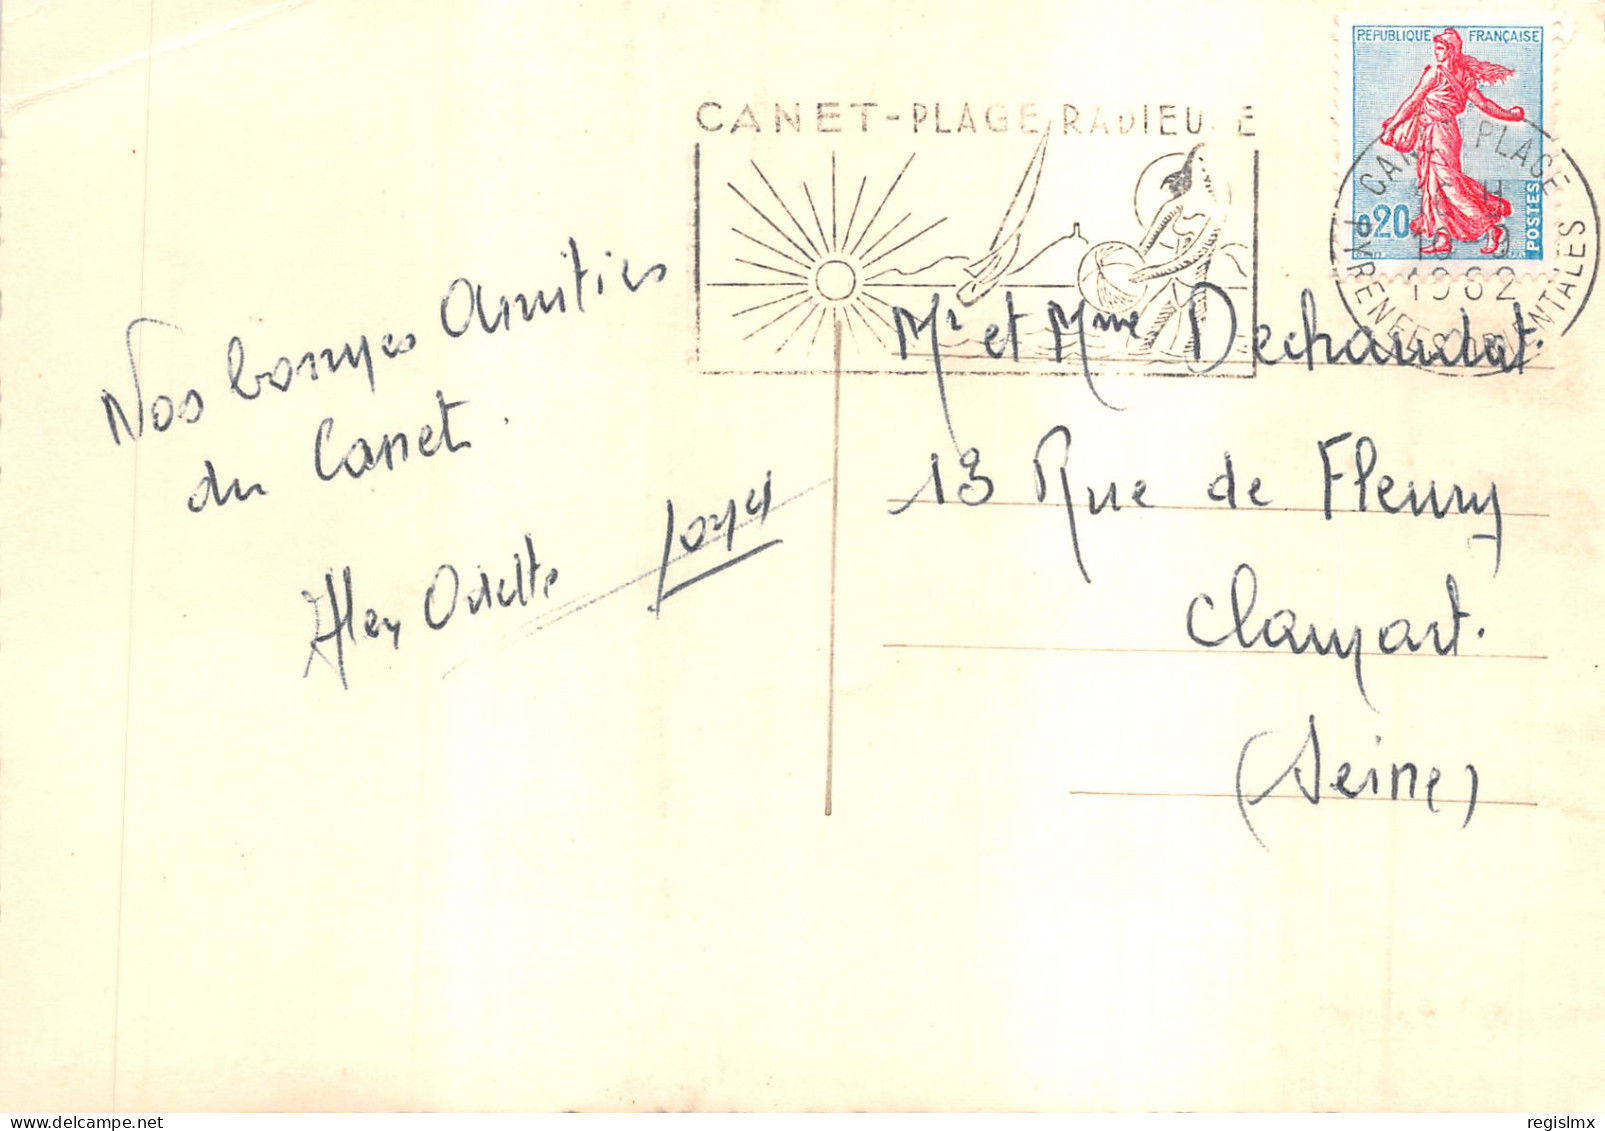 CANET-PLAGE RADIEU E
REPUBLIQUE FRANÇAISE
0,20
POSTES
CANET PLAGE
1962
PYRENEES ORIENTALES
Nos bonnes Amitiés
du Canet.
Odette
Mr et Mme Dechaudat.
13 Rue de Fleury
Clamart.
(Seine)
regislmx